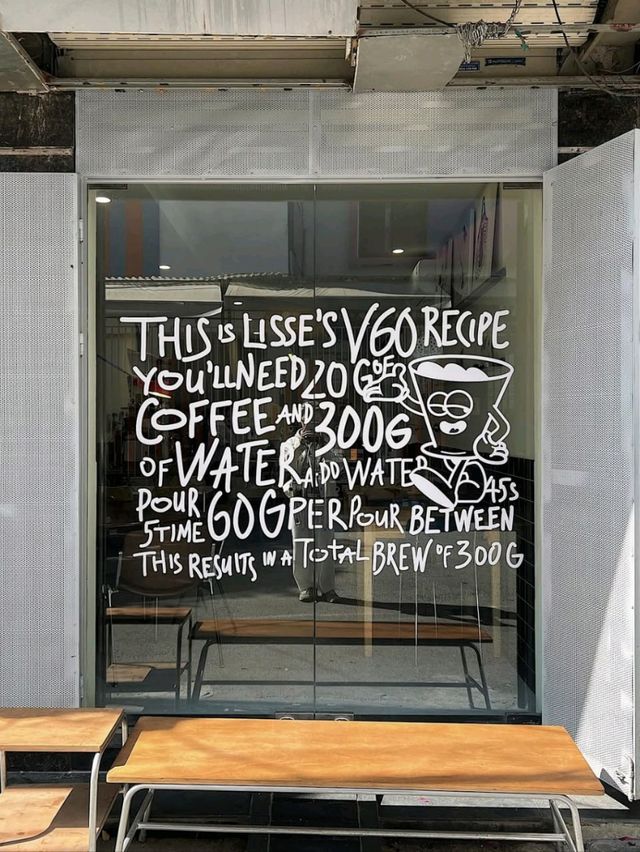 THIS IS LISSE'S V60 RECIPE
YOU'LL NEED 20 G OF
COFFEE AND 300G
OF WATER ADD WATER
POUR 60G PER POUR BETWEEN 45S
5TIME
THIS RESULTS IN A TOTAL BREW OF 300G